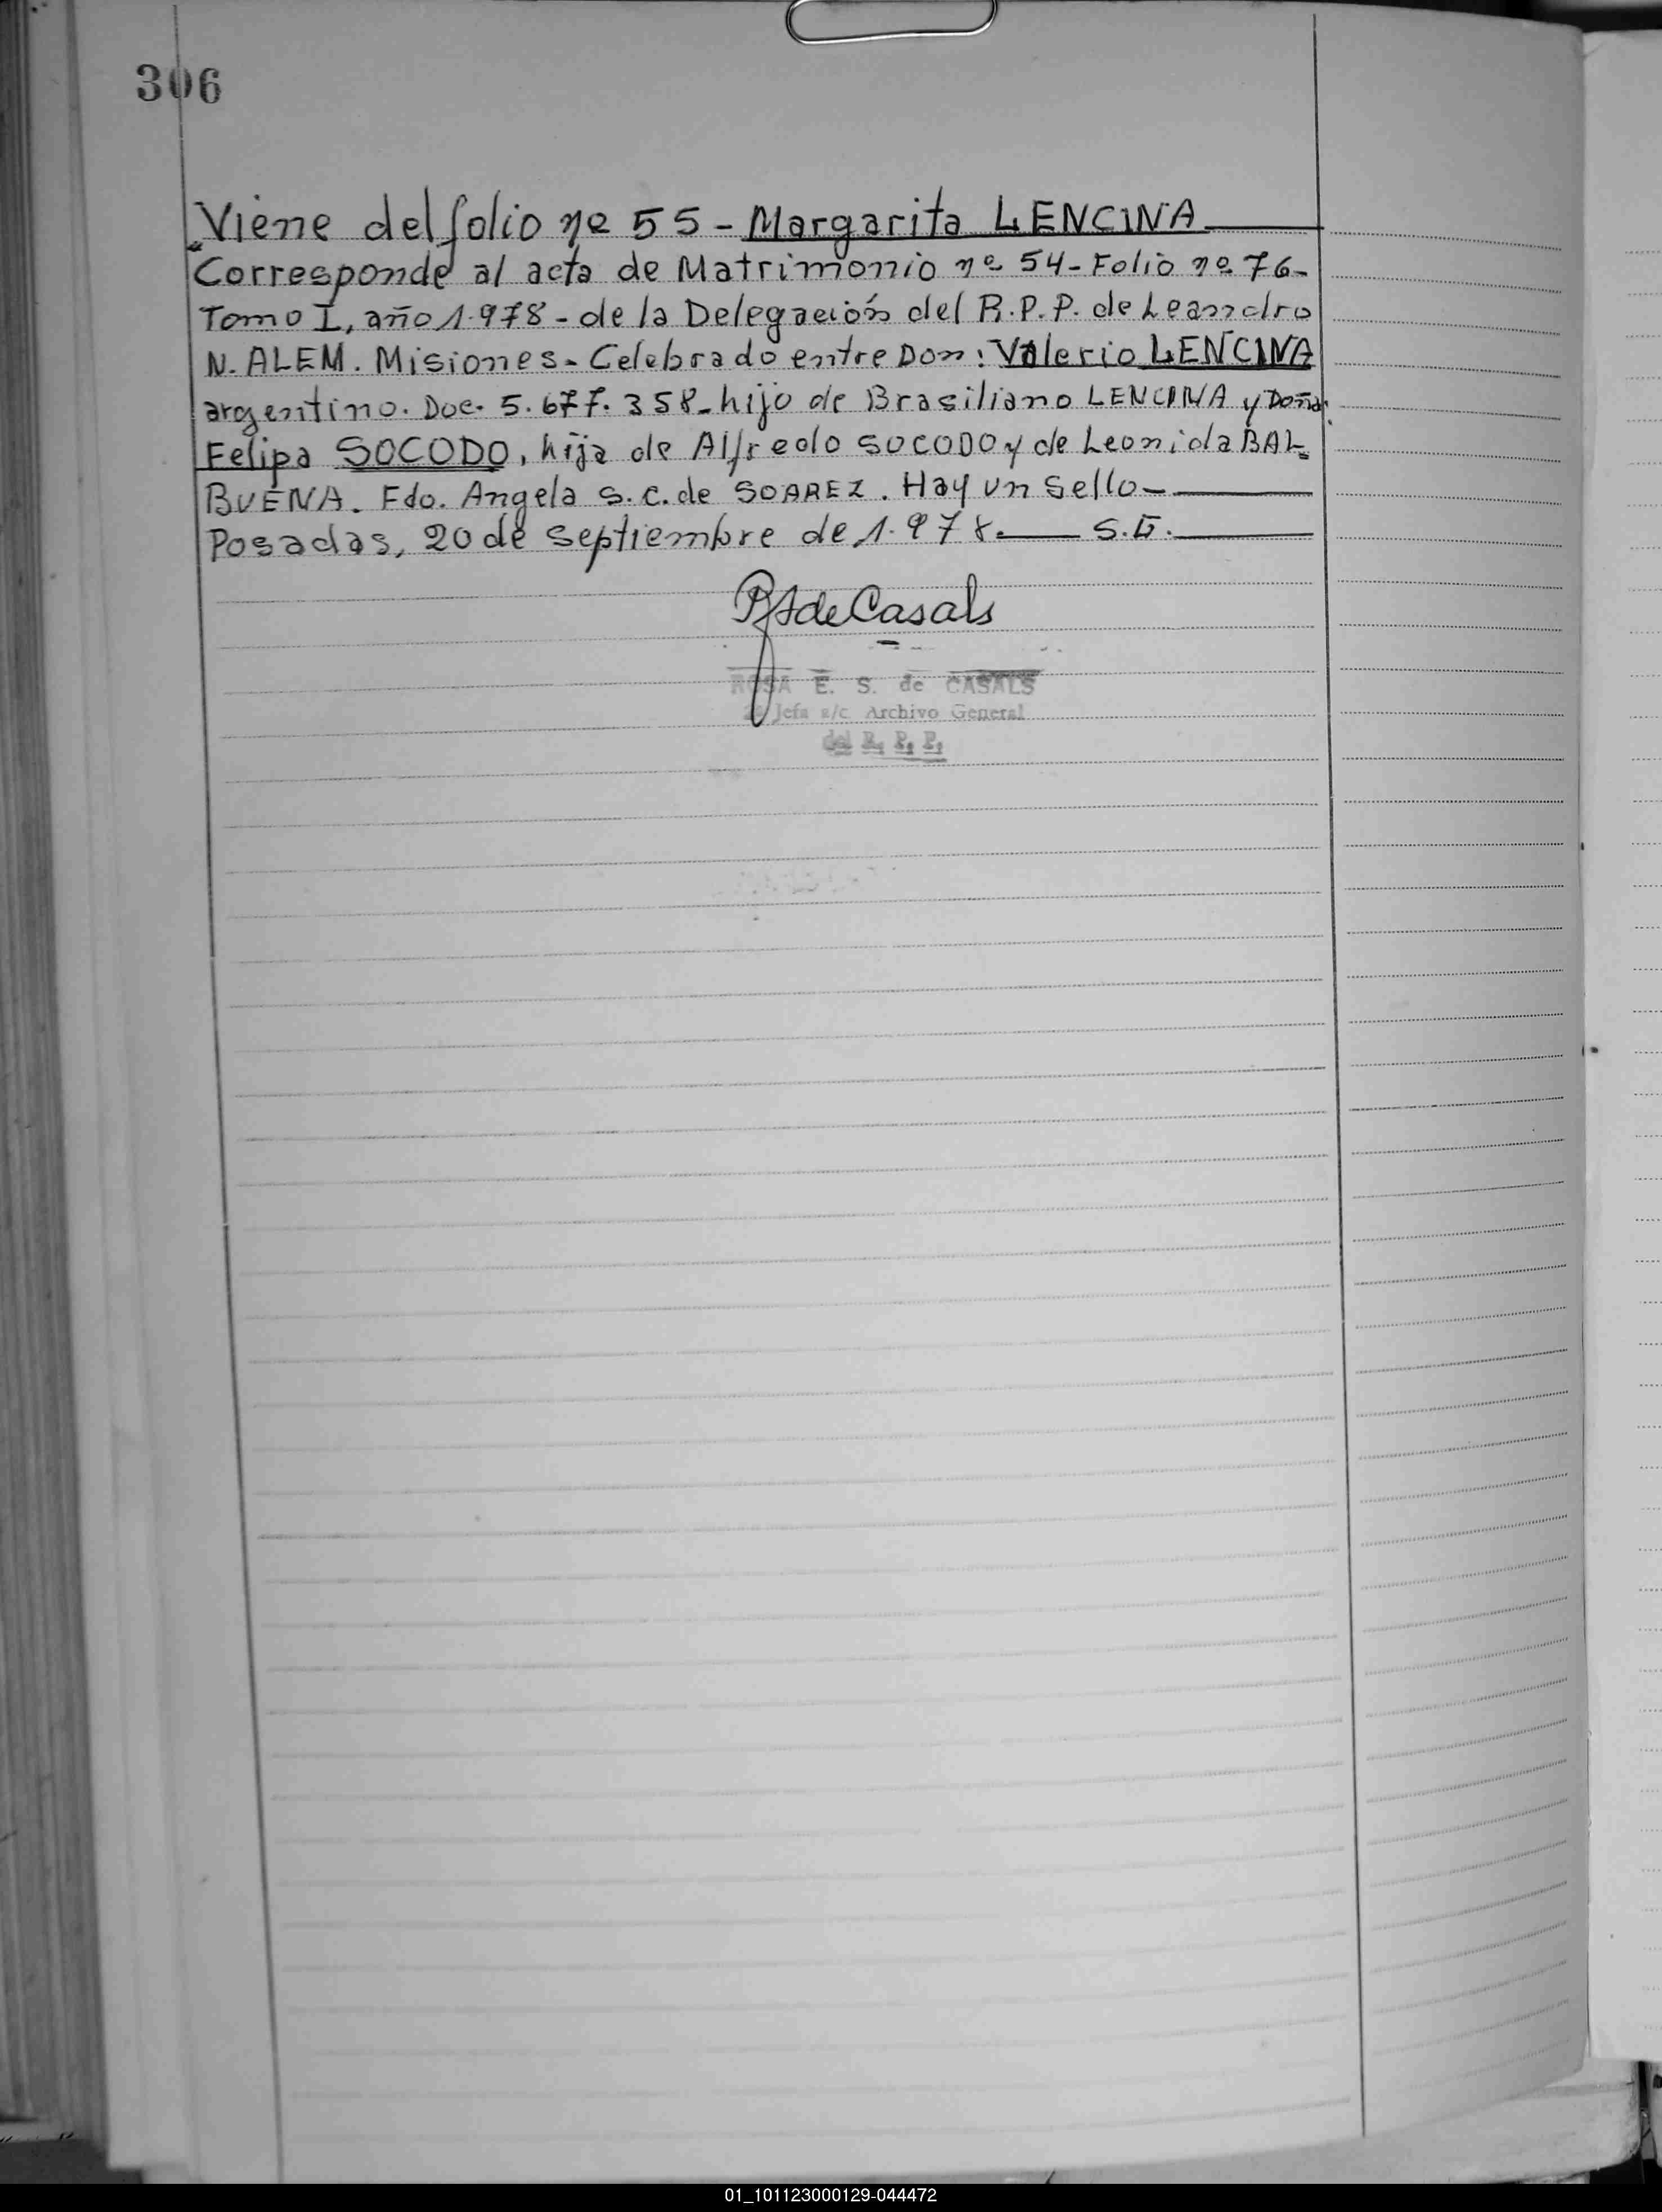 306
Viene del folio nº 55 - Margarita LENCINA
Corresponde al acta de Matrimonio nº 54 - Folio nº 76-
Tomo I, año 1.978 - de la Delegación del R.P.P. de Leandro
N. ALEM. Misiones - Celebrado entre Don: Valerio LENCINA
argentino. Doc. 5.677.358 - hijo de Brasiliano LENCINA y Doña
Felipa SOCODO, hija de Alfredo SOCODO y de Leonida BAL-
BUENA. Fdo. Angela S.C. de SOAREZ. Hay un sello -
Posadas, 20 de septiembre de 1.978.
de Casals
ROSA E. S. de CASALS
Jefa a/c Archivo General
del R. P. P.
01_101123000129-044472